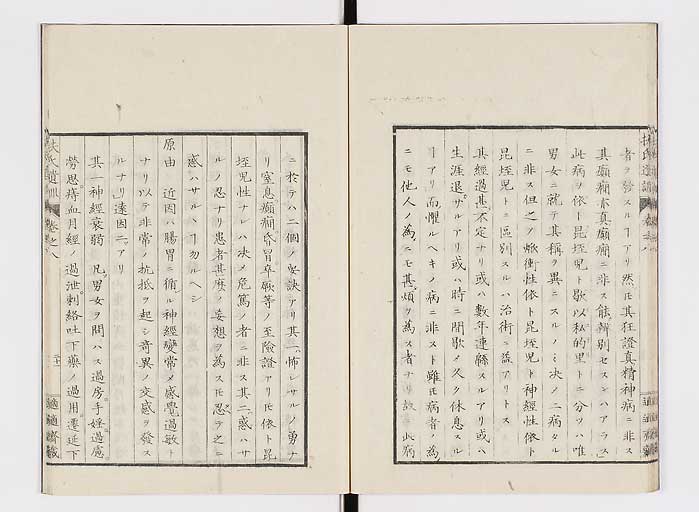 者ヲ發スルヿアリ然𪜈其狂證真精神病ニ非ス
其癲癇亦真癲癇ニ非ス能辨別セスンハアラス
此病ヲ依卜昆垤児ト歇以私的里トニ分ツハ唯
男女ニ就テ其稱ヲ異ニスルノミ决ノ二病タル
ニ非ス但之ヲ焮衝性依卜昆垤児ト神經性依卜
昆垤児トニ區別スルハ治術ニ益アリトス
其經過甚不定ナリ或ハ數年連緜スルアリ或ハ
生涯退サルアリ或ハ時ニ間歇メ久ク休息スル
ヿアリ而懼ルヘキノ病ニ非スト雖𪜈病者ノ為
ニモ他人ノ為ニモ甚煩ヲ為ス者ナリ故ニ此病
ニ於テハ二個ノ要訣アリ其一怖レサルノ勇ナ
リ窒息癲癇昏冒卒厥等ノ至險證アリ𪜈依卜昆
垤児性ナレハ决メ危篤ノ者ニ非ス其二惑ハサ
ルノ忍ナリ患者其麽ノ妄想ヲ為ス𪜈忍テ之ニ
惑ハサルハヿ勿ルヘシ
原由 近因ハ腸胃ニ循ル神經變常メ感覺過敏ト
ナリ以テ非常ノ抗抵ヲ起シ奇異ノ交感ヲ發ス
ルナリ遠因二アリ
其一神經衰弱 凡男女ヲ問ハス過房手婬過慮
勞思痔血月經ノ過泄刺絡吐下藥ノ過用遷延下
扶氏遺訓 卷之八
適適齋藏